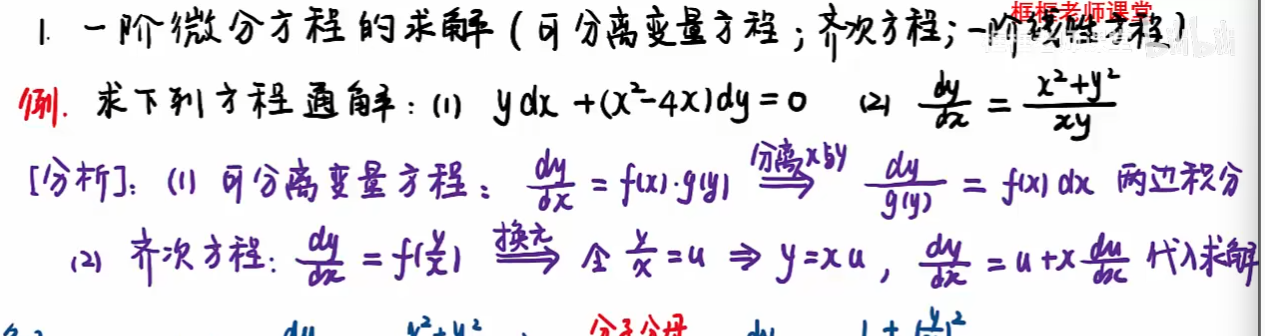 框框老师课堂
1. 一阶微分方程的求解（可分离变量方程；齐次方程；一阶线性方程）
例. 求下列方程通解：(1) ydx + (x²-4x)dy = 0 (2) dy/dx = (x²+y²)/(xy)
[分析]：(1) 可分离变量方程：dy/dx = f(x)·g(y) ⟹ 分离x与y dy/g(y) = f(x)dx 两边积分
(2) 齐次方程：dy/dx = f(y/x) ⟹ 换元 令 y/x = u ⇒ y = xu, dy/dx = u + x du/dx 代入求解
分子分母